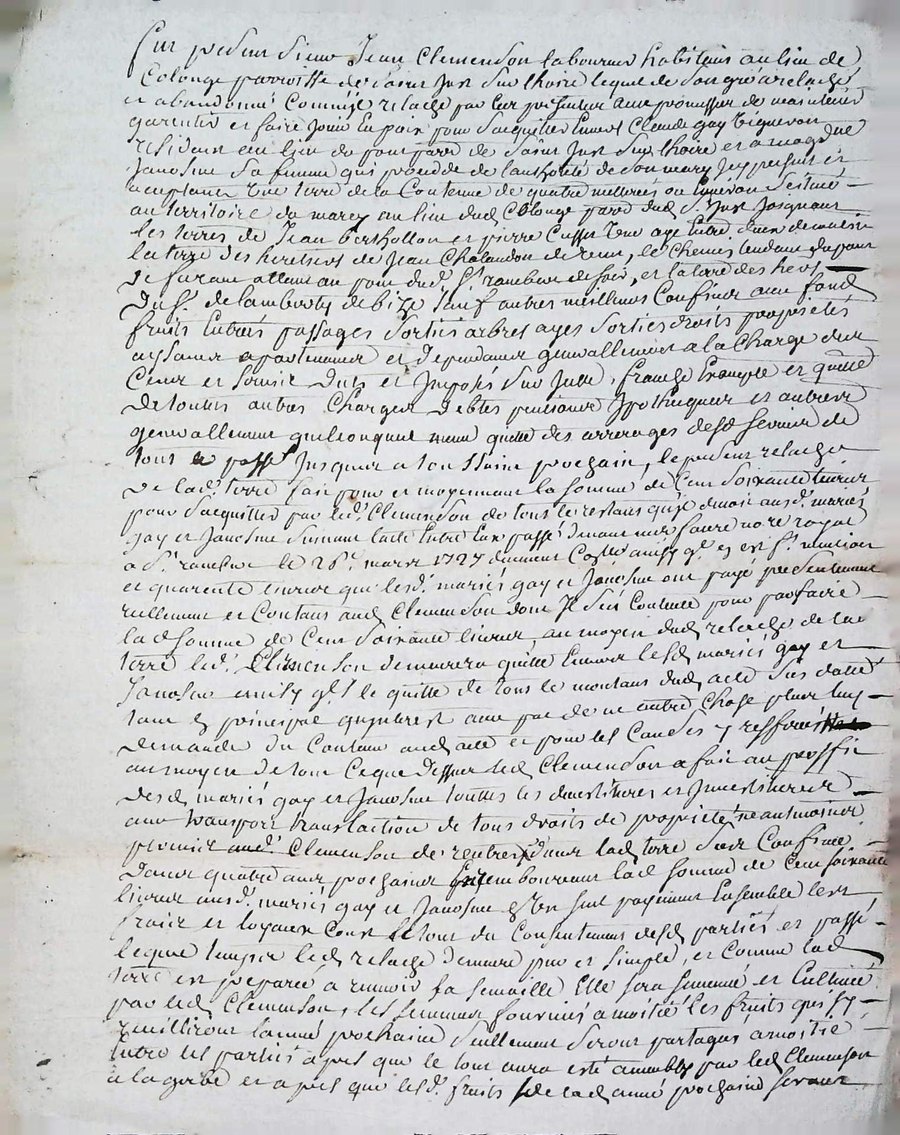 fut present sieur Jean Clemenson laboureur habitant au lieu de
Colonge parroisse de saint Just sur Loire lequel de son gré a relaché
et abandonné Comme relache par les presentes avec promesse de maintenir
garentir et faire jouir En paix pour s'acquitter Envers Claude gay vigneron
residant au lieu de parroisse de saint Just sur Loire et a
Janosme sa femme qui procede de l'authorité de son mary Icy presents et
acceptants Une terre de la Contenue de quatre metterées ou Environ scitué
au territoire du marey au lieu dud Colonge parr dud St Just Joignant
les terres de Jean berthollon et pierre Cusset de matin
la terre des heritiers de Jean Chalandon de le Chemin tendant du pont
de furans allant au port dud St rambert de soir, et la terre des hers
du Sr de lambertes de bize sauf autres meilleurs Confins avec fond
fruits Entrées passages sorties arbres ayes sorties droits proprietés
aysances apartenances et dependances generallement a la Charge des
Cens et servis dus et Imposés sur Icelle, franche Exempte et quitte
de toutes autres Charges debtes pensions Ypotheques et autres
generallement quelconques meme quitte des arrerages desd servis de
tout le passé Jusques a la st saint prochain, le present relache
de lad. terre fait pour et moyennant la somme de Cent soixante livres
pour s'acquitter par led. Clemenson de tout le restant qu'il devoit ausd. mariés
gay et Janosme suivant l'acte Entre Eux passé devant me faure no.re royal
a St rambert le 26e. mars 1727 duement Con.lé ainsy q. y est ft mention
et quarente livres que lesd. mariés gay et Janosme ont payé presentement
reellement et Contant aud Clemenson dont Il s'est Contenté pour parfaire
lad somme de Cent soixante livres au moyen dud relache de lad
terre led. Clemenson demeurera quitte Envers lesd mariés gay et
Janosme ainsy qu'il le quitte de tout le montant dud acte sus datté
tant en principal qu'interest avec pac de ne autre Chose plus luy
demander du Contenu aud acte et pour les Causes y
au moyen de tout Ce que dessus led Clemenson a fait au proffit
desd mariés gay et Janosme touttes les devestitures et Investitures
avec transport translaction de tous droits de proprieté neantmoins
permis aud. Clemenson de rentrer dans lad terre sus Confinée
dans quatre ans prochains En remboursant lad somme de Cent soixante
livres ausd. mariés gay et Janosme En un seul payement Ensemble les
fraix et loyaux Couts le tout du Consentement desd parties et passé
lequel temps led relache demeure pur et simple, et Comme lad
terre est preparée a recevoir sa semaille Elle sera semmé et Cultivé
par led Clemenson, les semmances fournies a moitié les fruits qui s'y
receuilliront l'année prochaine seullement seront partagés a moitié
Entre les parties apres que le tout aura esté amassé par led Clemenson
a la gerbe et apres que lesd. fruits de lad année prochaine seront